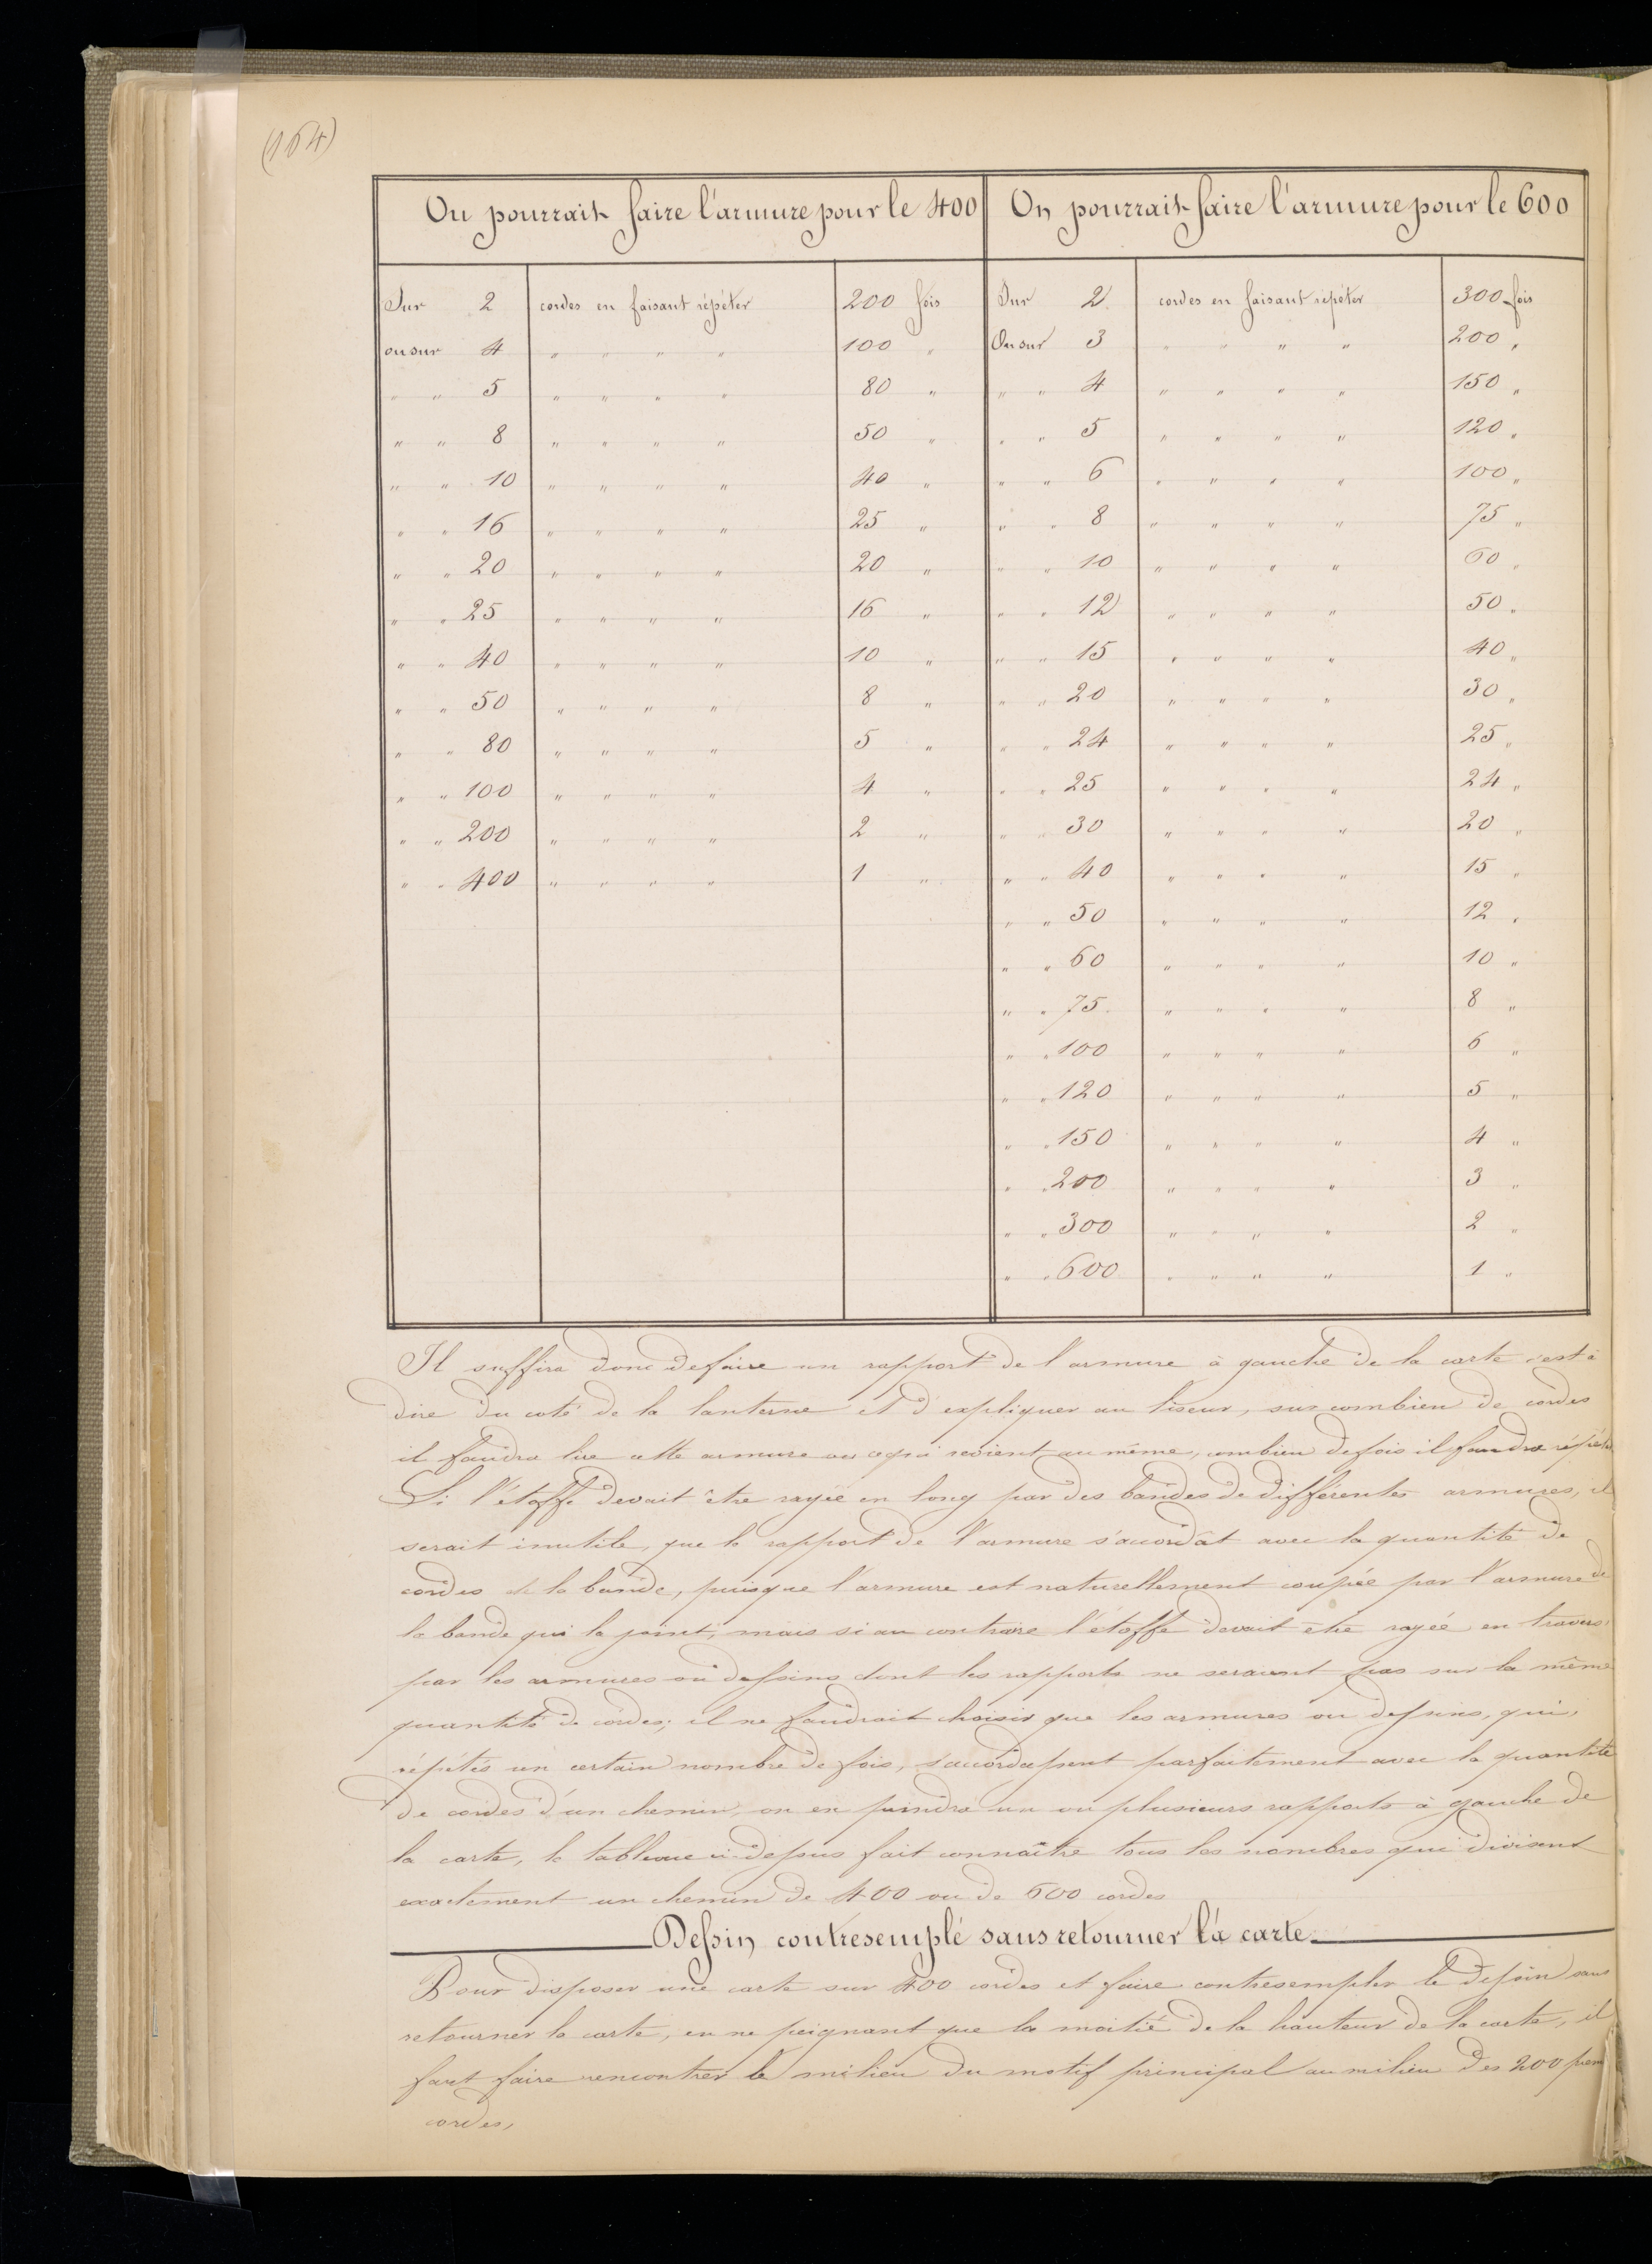 (164)
On pourrait faire l'armure pour le 400 On pourrait faire l'armure pour le 600
Sur 2 cordes en faisant répéter 200 fois Sur 2 cordes en faisant répéter 300 fois
ou sur 4 " " " " 100 " Ou sur 3 " " " " 200 "
" " 5 " " " " 80 " " " 4 " " " " 150 "
" " 8 " " " " 50 " " " 5 " " " " 120 "
" " 10 " " " " 40 " " " 6 " " " " 100 "
" " 16 " " " " 25 " " " 8 " " " " 75 "
" " 20 " " " " 20 " " " 10 " " " " 60 "
" " 25 " " " " 16 " " " 12 " " " " 50 "
" " 40 " " " " 10 " " " 15 " " " " 40 "
" " 50 " " " " 8 " " " 20 " " " " 30 "
" " 80 " " " " 5 " " " 24 " " " " 25 "
" " 100 " " " " 4 " " " 25 " " " " 24 "
" " 200 " " " " 2 " " " 30 " " " " 20 "
" " 400 " " " " 1 " " " 40 " " " " 15 "
" " 50 " " " " 12 "
" " 60 " " " " 10 "
" " 75 " " " " 8 "
" " 100 " " " " 6 "
" " 120 " " " " 5 "
" " 150 " " " " 4 "
" " 200 " " " " 3 "
" " 300 " " " " 2 "
" " 600 " " " " 1 "
Il suffira donc de faire un rapport de l'armure à gauche de la carte c'est à
dire du coté de la lanterne et d'expliquer au liseur, sur combien de cordes
il faudra lire cette armure ou ce qui revient au même, combien de fois il faudra répéter
Si l'étoffe devait être rayée en long par des bandes de différentes armures, il
serait inutile, que le rapport de l'armure s'accordât avec la quantité de
cordes de la bande, puisque l'armure est naturellement coupée par l'armure de
la bande qui la joint, mais si au contraire l'étoffe devait être rayée en travers
par les armures ou dessins dont les rapports ne seraient pas sur la même
quantité de cordes; il ne faudrait choisir que les armures ou dessins, qui,
répétés un certain nombre de fois, s'accordassent parfaitement avec la quantité
de cordes d'un chemin, on en peindra un ou plusieurs rapports à gauche de
la carte, le tableau ci-dessus fait connaître tous les nombres qui divisent
exactement un chemin de 400 ou de 600 cordes
Dessin contresemplé sans retourner la carte
Pour disposer une carte sur 400 cordes et faire contresempler le dessin sans
retourner la carte, en ne peignant que la moitié de la hauteur de la carte, il
faut faire rencontrer le milieu du motif principal au milieu des 200 prem
cordes,